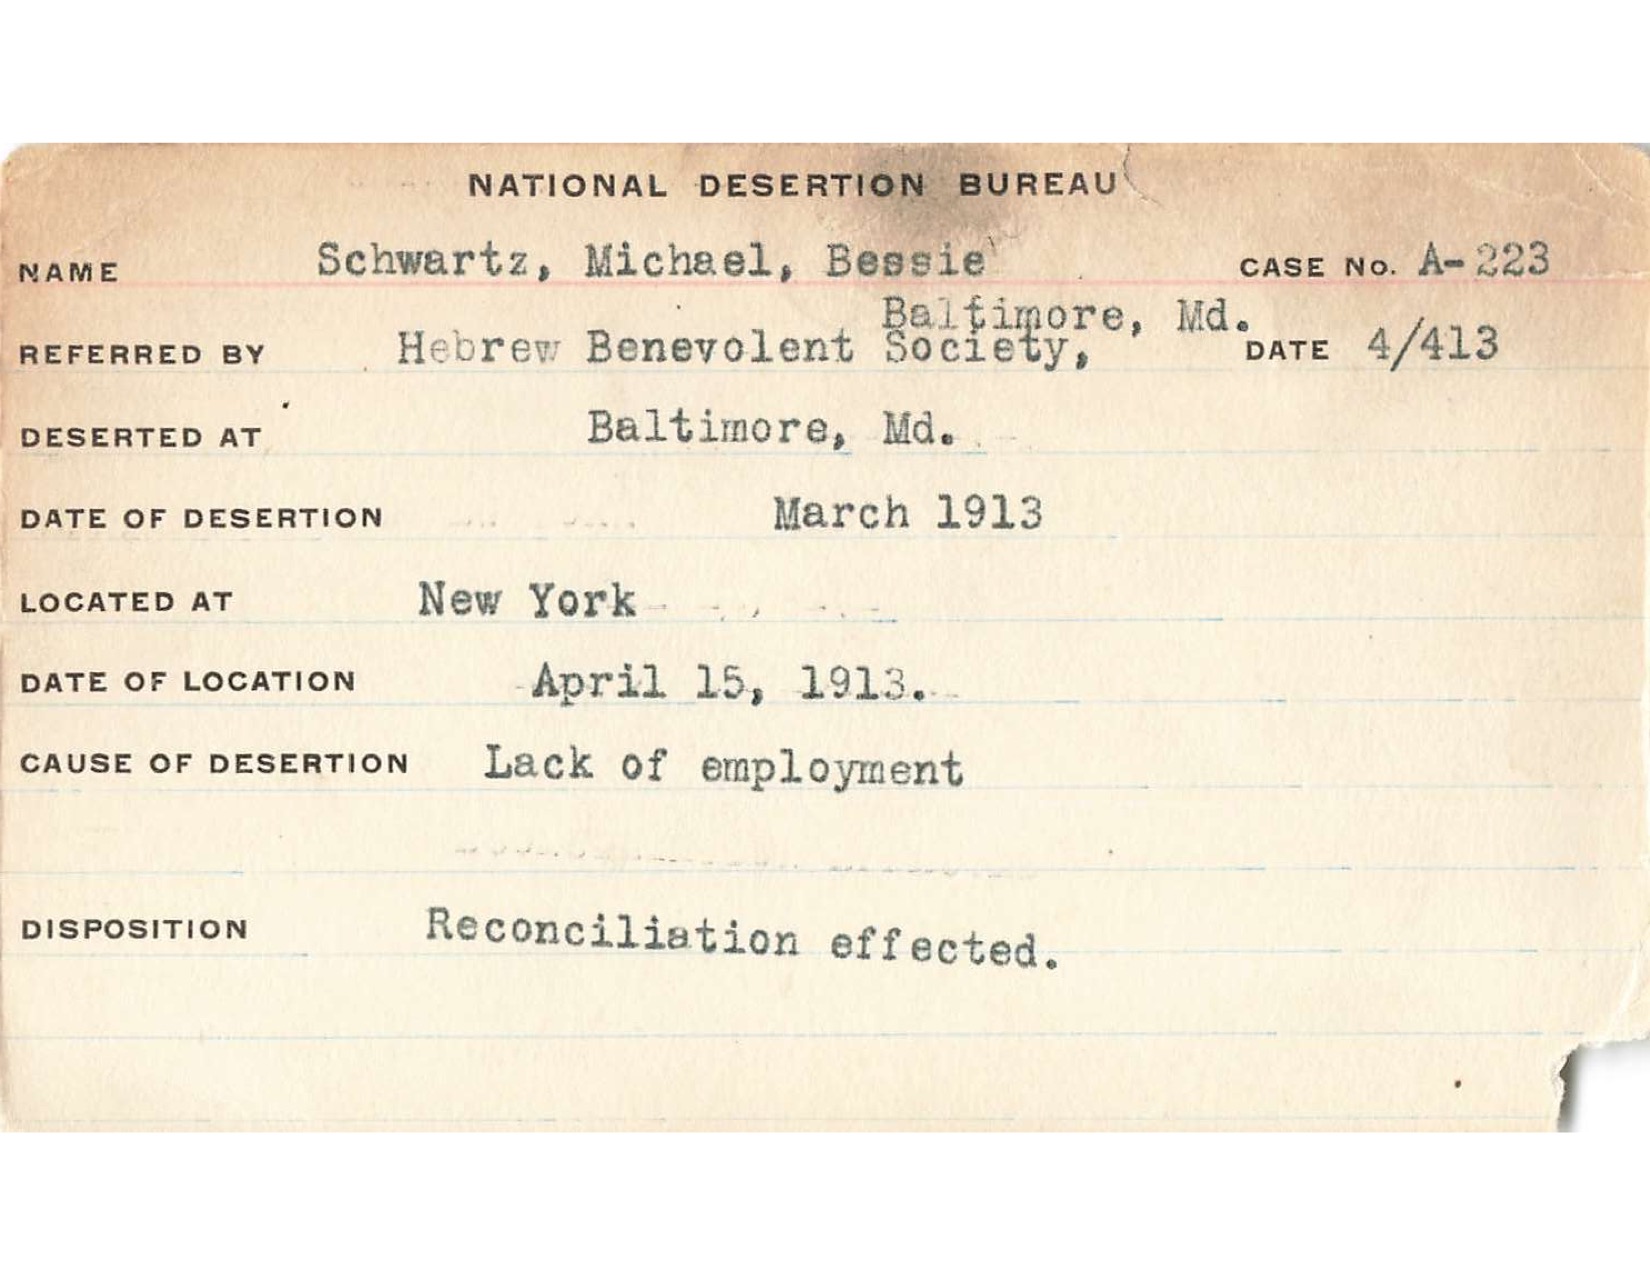 NATIONAL DESERTION BUREAU
NAME Schwartz, Michael, Bessie CASE No. A-223
Baltimore, Md.
REFERRED BY Hebrew Benevolent Society, DATE 4/413
DESERTED AT Baltimore, Md.
DATE OF DESERTION March 1913
LOCATED AT New York
DATE OF LOCATION April 15, 1913.
CAUSE OF DESERTION Lack of employment
DISPOSITION Reconciliation effected.